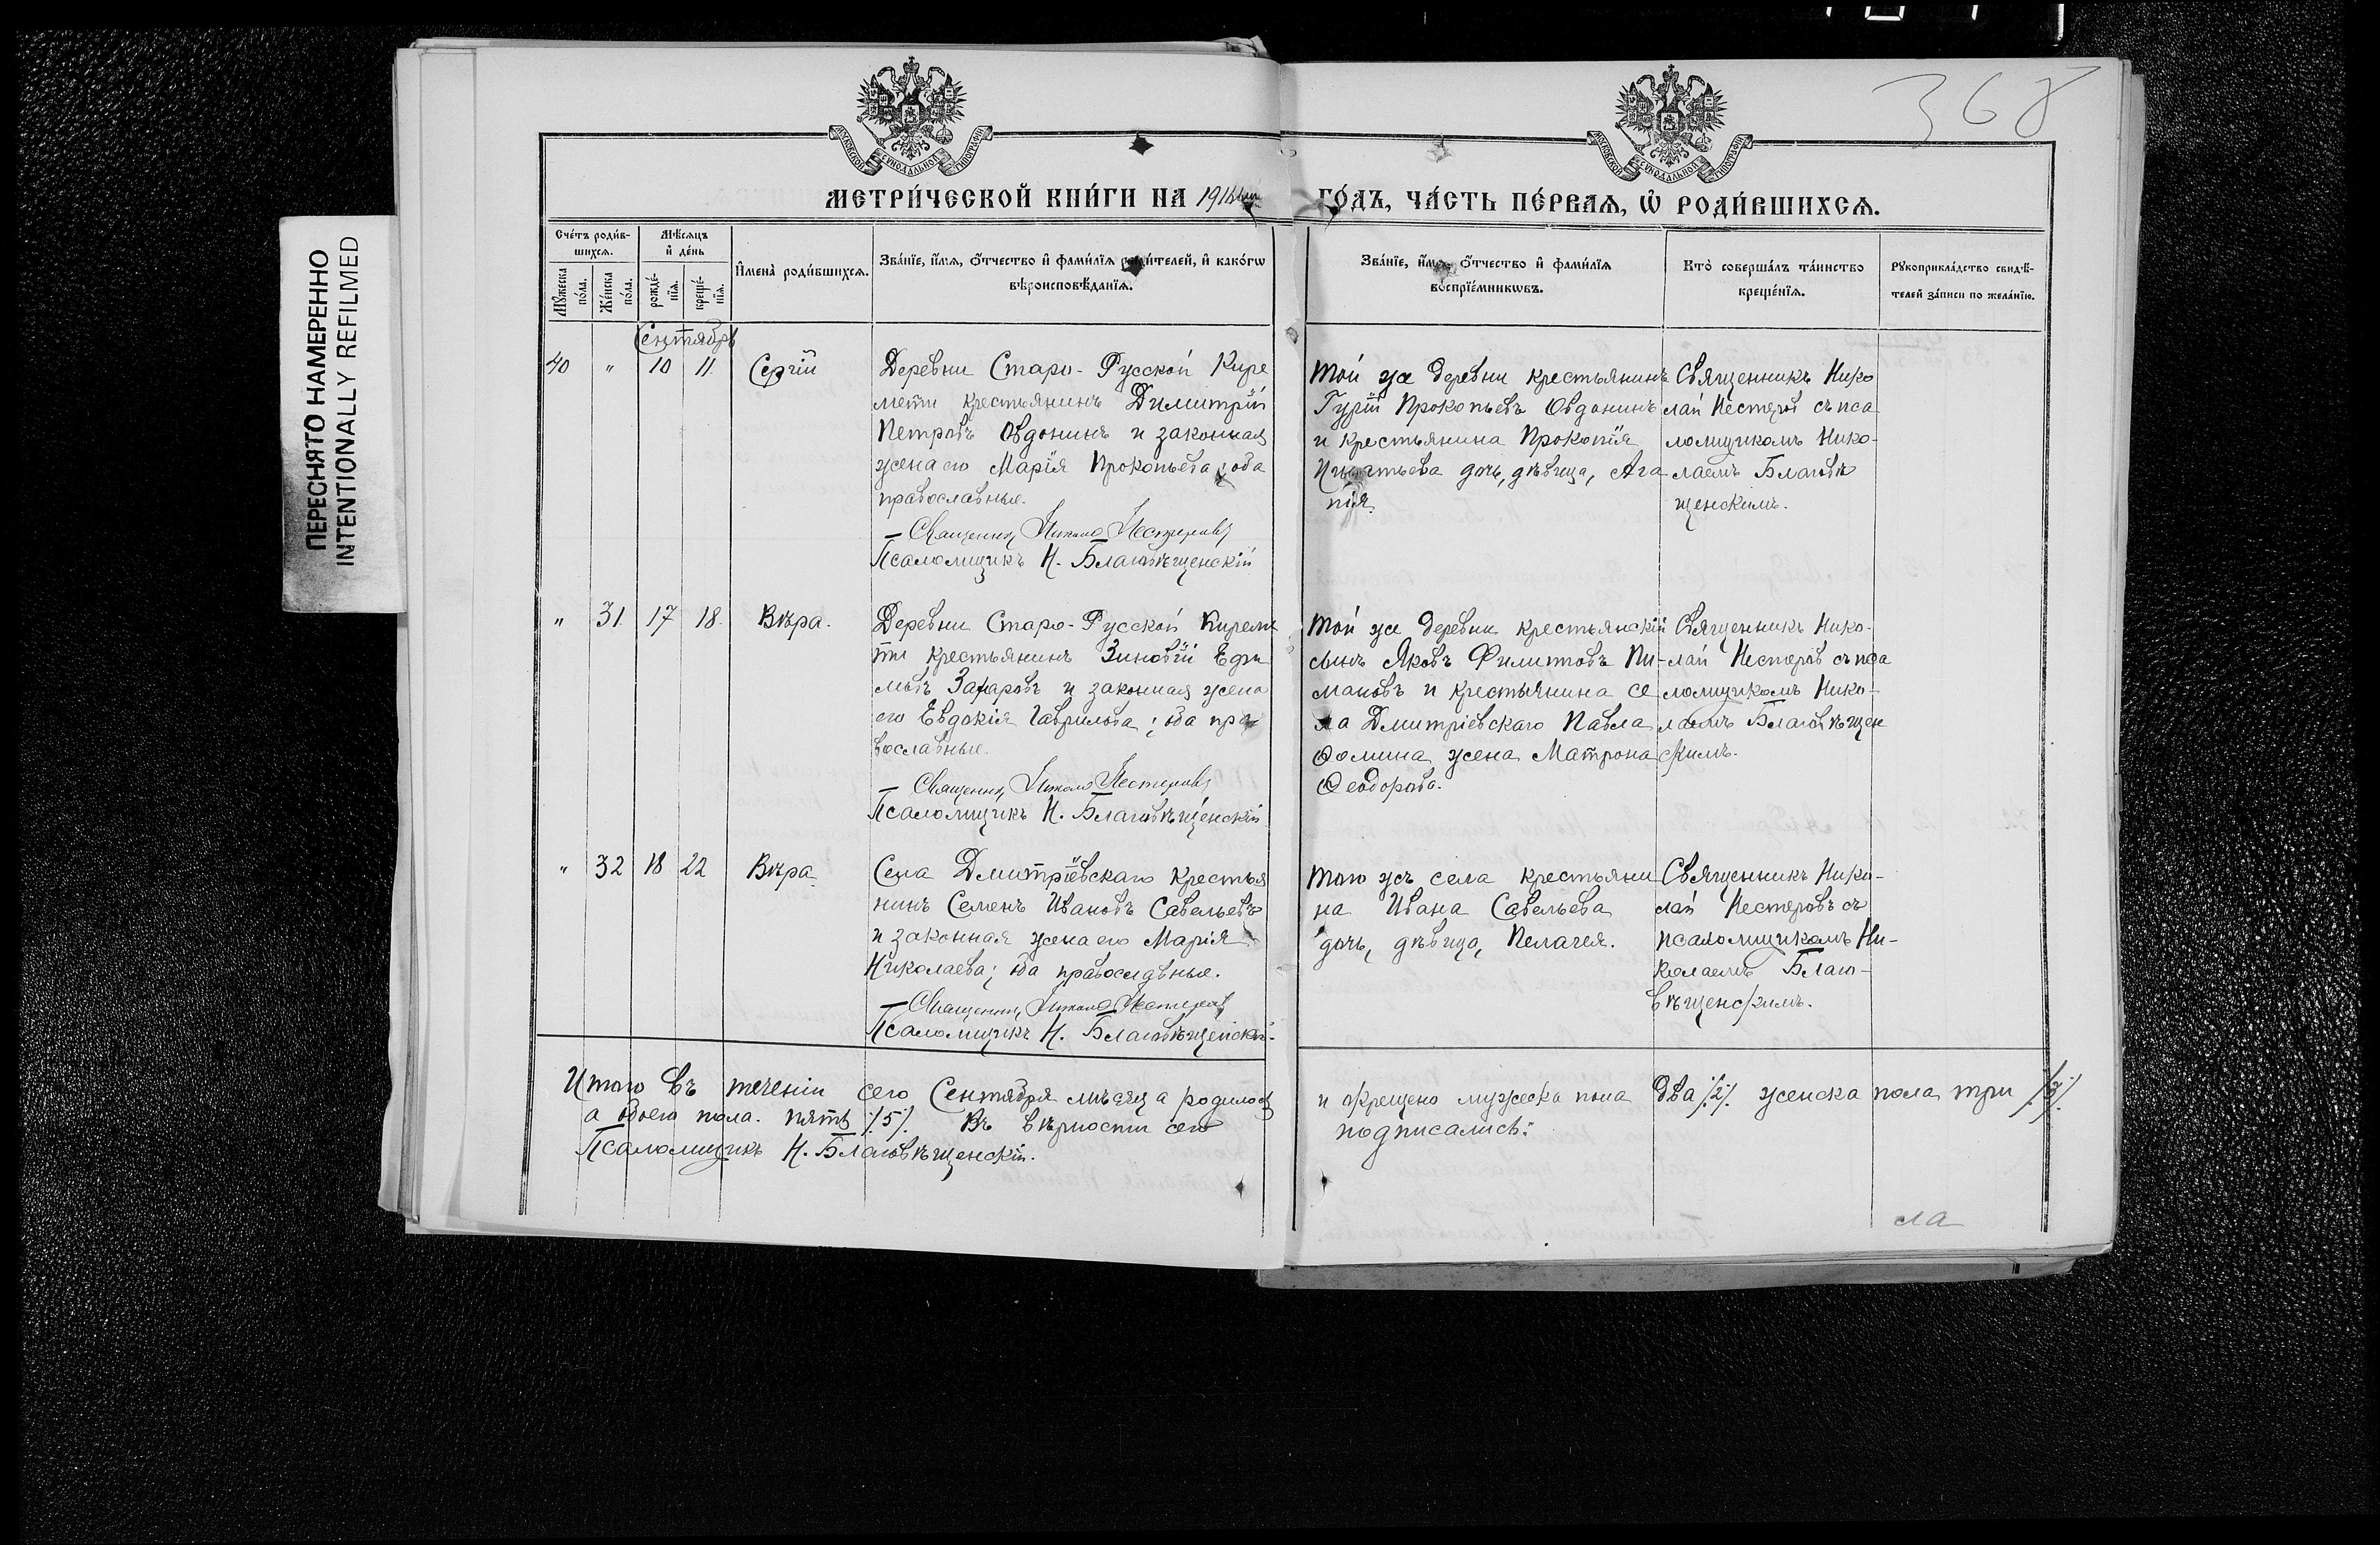 368
ПЕРЕСНЯТО НАМЕРЕННО
INTENTIONALLY REFILMED
МОСКОВСКОЙ СѴНОДАЛЬНОЙ ТИПОГРАФІИ
МОСКОВСКОЙ СѴНОДАЛЬНОЙ ТИПОГРАФІИ
МЕТРИ́ЧЕСКОЙ КНИ́ГИ НА 191
ГО́ДЪ, ЧА́СТЬ ПЕ́РВАѦ, Ѡ҆ РОДИ́ВШИХСѦ.
Сче́тъ роди́в-
шихсѧ.
Мꙋжеска по́ла.
Же́нска по́ла.
Мѣ́сѧцъ
и҆ де́нь
рожде́-
нїѧ.
креще́-
нїѧ.
И҆мена̀ роди́вшихсѧ.
Зва́нїе, и҆́мѧ, ѻ҆́тчество и҆ фами́лїѧ роди́телей, и҆ како́гѡ
вѣроисповѣ́данїѧ.
Зва́нїе, и҆́мѧ, ѻ҆́тчество и҆ фами́лїѧ
воспрїе́мникѡвъ.
Кто̀ соверша́лъ та́инство
креще́нїѧ.
Рꙋкоприкла́дство свидѣ́-
телей за́писи по жела́нїю.
Сентябрь
40 " 10 11. Сергій
Деревни Старо-Русской Кире
мети крестьянинъ Димитрій
Петровъ Овдонинъ и законная
жена его Марія Прокопьева; оба
православные.
Священникъ Николай Нестеровъ
Псаломщикъ Н. Благовѣщенскій
Той же деревни крестьянинъ
Гурій Прокопьевъ Овдонинъ
и крестьянина Прокопія
Игнатьева дочь, дѣвица, Ага
пія.
Священникъ Нико
лай Нестеровъ съ пса
ломщикомъ Нико-
лаемъ Благовѣ
щенскимъ.
" 31 17 18. Вѣра.
Деревни Старо-Русской Киреме
ти крестьянинъ Зиновій Ефи
мовъ Захаровъ и законная жена
его Евдокія Гаврилова; оба пра
вославные.
Священникъ Николай Нестеровъ
Псаломщикъ Н. Благовѣщенскій
Той же деревни крестьянскій
сынъ Яковъ Филипповъ Пи-
мановъ и крестьянина се
ла Дмитріевскаго Павла
Ѳомина жена Матрона
Ѳеодорова.
Священникъ Нико-
лай Нестеровъ съ пса
ломщикомъ Нико-
лаемъ Благовѣщен
скимъ.
" 32 18 22 Вѣра
Села Дмитріевскаго крестья
нинъ Семенъ Ивановъ Савельевъ
и законная жена его Марія
Николаева; оба православные.
Священникъ Николай Нестеровъ
Псаломщикъ Н. Благовѣщенскій.
Того же села крестьяни
на Ивана Савельева
дочь, дѣвица, Пелагея.
Священникъ Нико-
лай Нестеровъ съ
псаломщикомъ Ни-
колаемъ Благо-
вѣщенскимъ.
Итого въ теченіи сего Сентября мѣсяца родилось и окрещено мужеска пола два /2/. женска пола три /3/.
а обоего пола. пять /5/. Въ вѣрности сего подписались:
Псаломщикъ Н. Благовѣщенскій.
ла